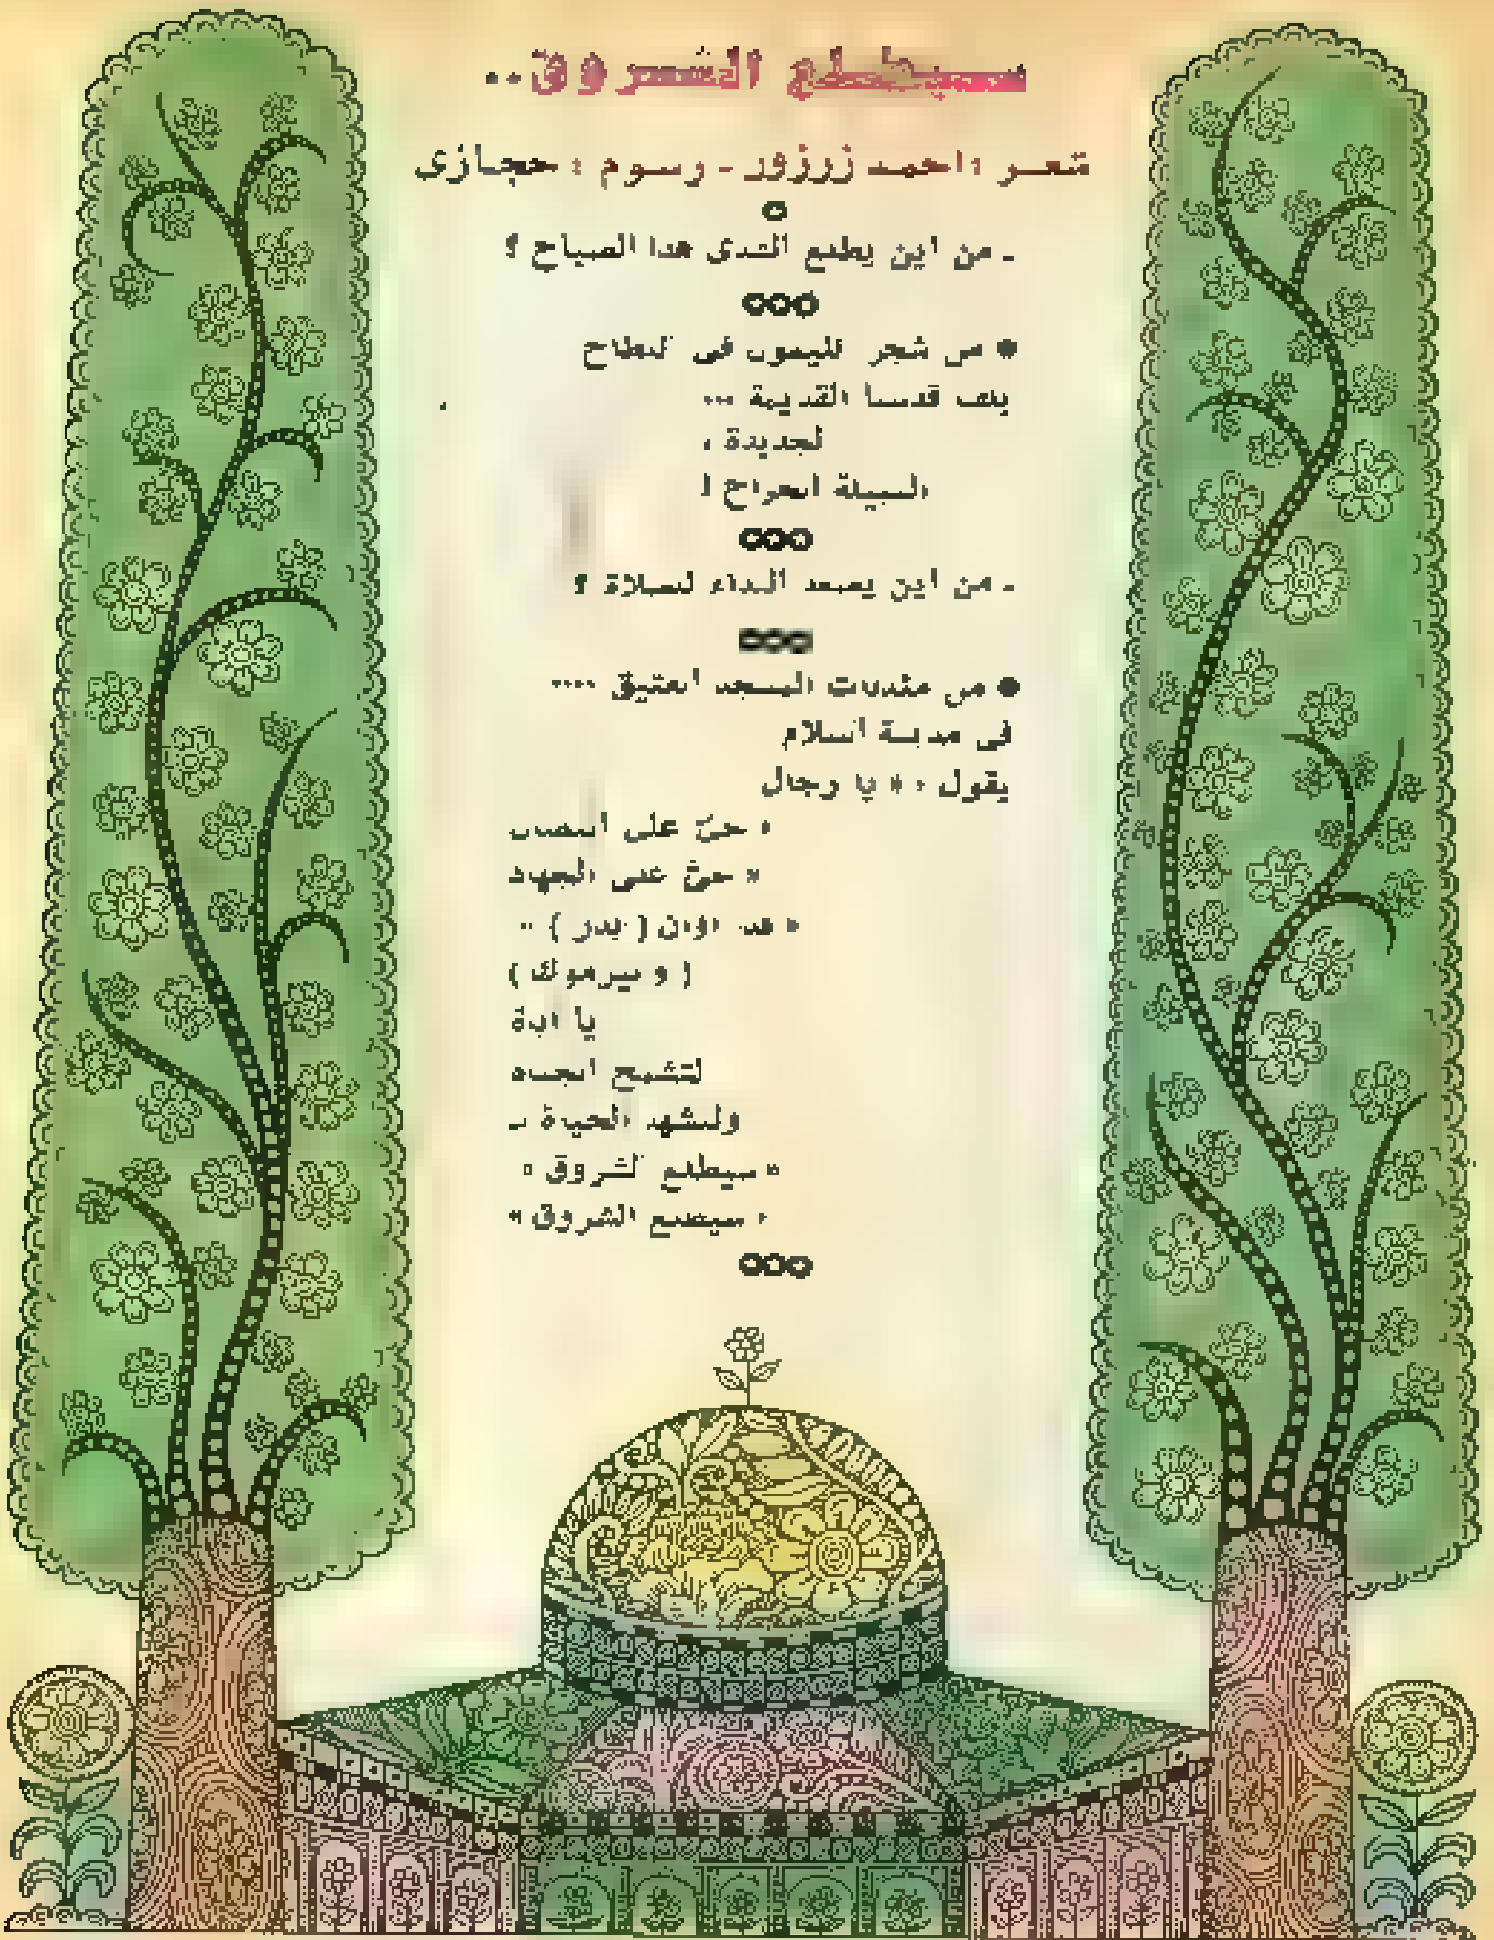 سيطلع الشروق..
شعر : احمد زرزور - رسوم : حجازى
- من اين يطلع الندى هذا الصباح ؟
● من شجر الليمون فى البطاح
قدسنا القديمة ...
الجديدة ،
النبيلة الجراح !
- من اين يصعد النداء للصلاة ؟
● من مئذنات المسجد العتيق ....
فى مدينة السلام
يقول : « يا رجال
« حىّ على النضال
« حىّ على الجهاد
« قد اذن ( بدر ) »
( و اليرموك )
يا
الجباه
ولتشهد الحياة ..
« سيطلع الشروق »
« سيطلع الشروق »